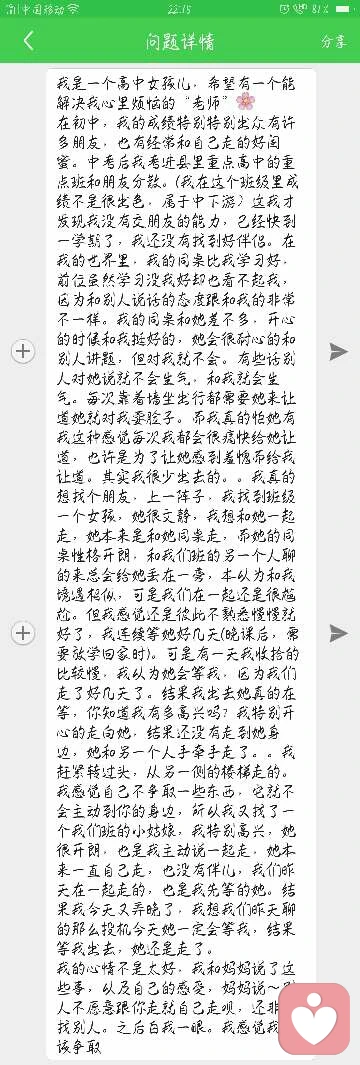 中国移动 22:15 81%
问题详情
分享
我是一个高中女孩儿，希望有一个能
解决我心里烦恼的“老师”🌸
在初中，我的成绩特别特别出众有许
多朋友，也有经常和自己走的好闺
蜜。中考后我考进县里重点高中的重
点班和朋友分散。(我在这个班级里成
绩不是很出色，属于中下游）这我才
发现我没有交朋友的能力，已经快到
一学期了，我还没有找到好伴侣。在
我的世界里，我的同桌比我学习好，
前位虽然学习没我好却也看不起我，
因为和别人说话的态度跟和我的非常
不一样。我的同桌和她差不多，开心
的时候和我挺好的，她会很耐心的和
别人讲题，但对我就不会。有些话别
人对她说就不会生气，和我就会生
气。每次靠着墙坐出行都需要她来让
道她就对我耍脸子。而我真的怕她有
我这种感觉每次我都会很痛快给她让
道，也许是为了让她感到羞愧而给我
让道。其实我很少出去的。。我真的
想找个朋友，上一阵子，我找到班级
一个女孩，她很文静，我想和她一起
走，她本来是和她同桌走，而她的同
桌性格开朗，和我们班的另一个人聊
的来总会给她丢在一旁，本以为和我
境遇相似，可是我们在一起还是很尴
尬。但我感觉还是彼此不熟悉慢慢就
好了，我连续等她好几天(晚课后，需
要放学回家时)。可是有一天我收拾的
比较慢，我认为她会等我，因为我们
走了好几天了。结果我出去她真的在
等，你知道我有多高兴吗？我特别开
心的走向她，结果还没有走到她身
边，她和另一个人手牵手走了。。我
赶紧转过头，从另一侧的楼梯走的。
我感觉自己不争取一些东西，它就不
会主动到你的身边，所以我又找了一
个我们班的小姑娘，我特别高兴，她
很开朗，也是我主动说一起走，她本
来一直自己走，也没有伴儿，我们昨
天在一起走的，也是我先等的她。结
果我今天又弄晚了，我想我们昨天聊
的那么投机今天她一定会等我，结果
等我出去，她还是走了。
我的心情不是太好，我和妈妈说了这
些事，以及自己的感受，妈妈说～别
人不愿意跟你走就自己走呗，还非
找别人。之后白我一眼。我感觉我
该争取